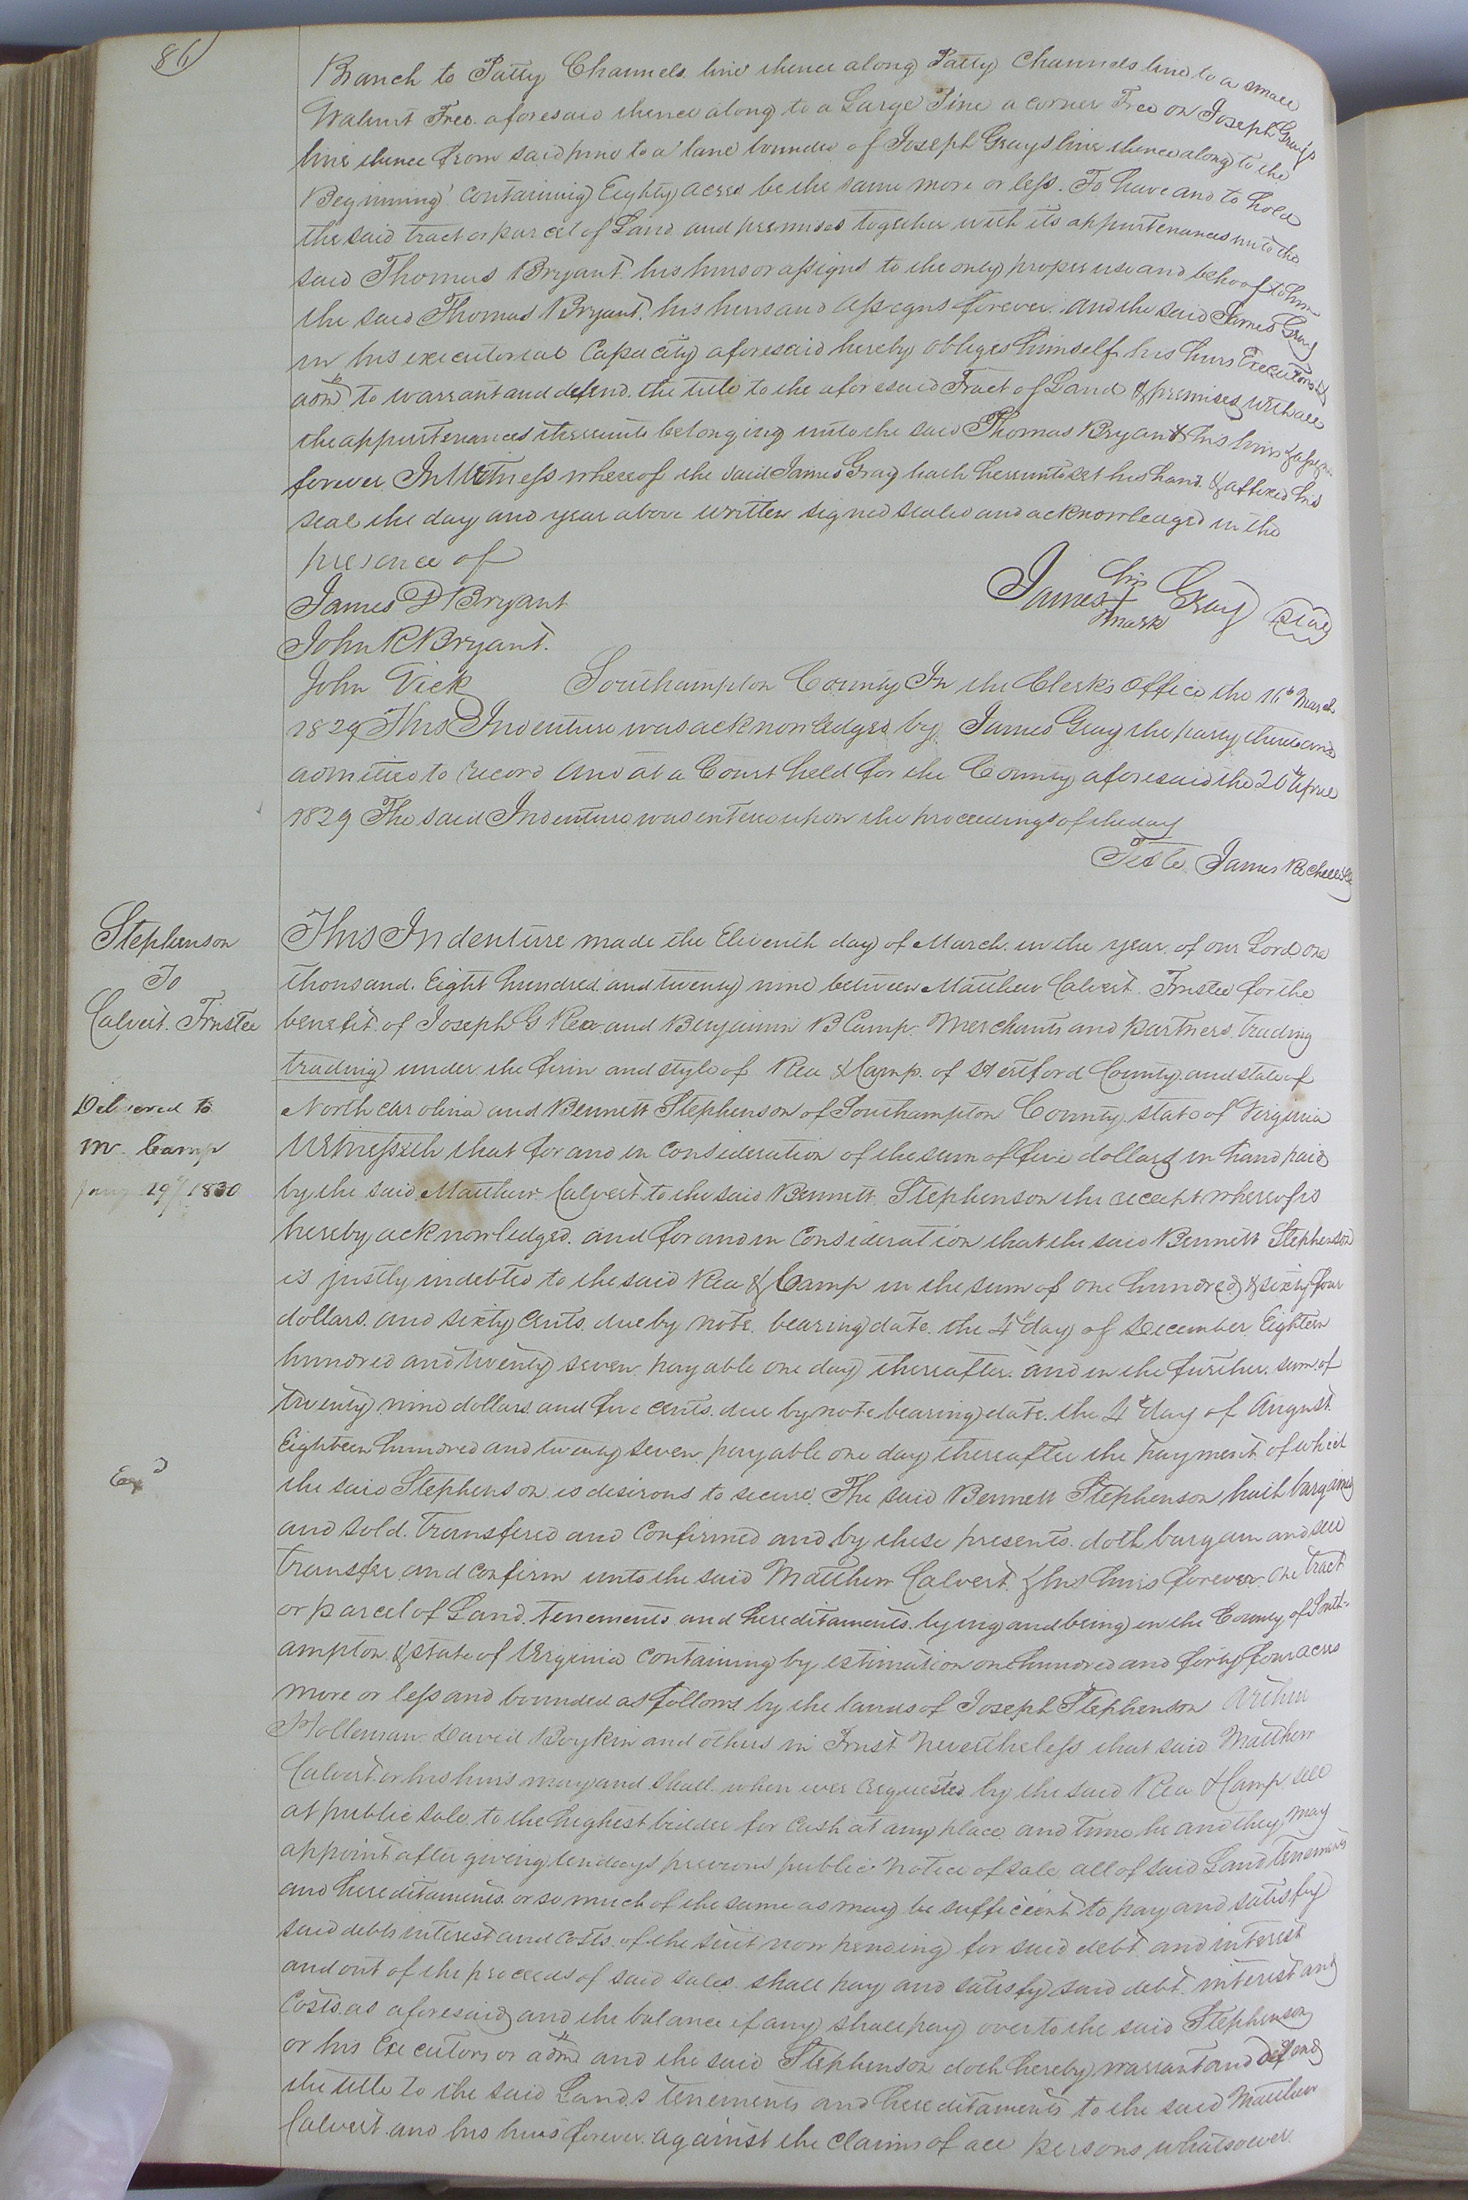 86
Branch to Patty Channels line thence along Patty Channels land to a small
Walnut Tree aforesaid thence along to a Large Pine a corner Tree on Joseph Gray's
line thence from said pine to a lane bounded of Joseph Grays line thence along to the
Beginning containing Eighty acres be the same more or less. To have and to hold
the said tract or parcel of Land and premises together with its appurtenances unto the
said Thomas Bryant his heirs or assigns to the only proper use and behoof to him
the said Thomas Bryant his heirs and assigns forever. and the said James Gray
in his executorial Capacity aforesaid hereby obliges himself his heirs Executors &
admrs to warrant and defend the title to the aforesaid Tract of Land & premises with all
the appurtenances thereunto belonging unto the said Thomas Bryant his heirs & assigns
forever In Witness whereof the said James Gray hath hereunto set his hand & affixed his
seal the day and year above written signed sealed and acknowledged in the
presence of
James D Bryant
John R Bryant.
John Vick
James his X mark Gray (seal)
Southampton County In the Clerk's Office the 16th March
1829 This Indenture was acknowledged by James Gray the party thereto and
admitted to record And at a Court held for the County aforesaid the 20th April
1829 The said Indenture was entered upon the proceedings of the day
Teste James Rochelle Clk
Stephenson
To
Calvert Trustee
Delivered to
Mr Camp
Jany 29th 1830
Exd
This Indenture made the Eleventh day of March in the year of our Lord one
thousand Eight hundred and twenty nine between Matthew Calvert Trustee for the
benefit of Joseph G Rea and Benjamin B Camp Merchants and partners trading
trading under the firm and style of Rea & Camp of Hertford County and state of
North carolina and Bennett Stephenson of Southampton County state of Virginia
Witnesseth that for and in consideration of the sum of five dollars in hand paid
by the said Matthew Calvert to the said Bennett Stephenson the receipt whereof is
hereby acknowledged and for and in Consideration that the said Bennett Stephenson
is justly indebted to the said Rea & Camp in the sum of one hundred & sixty four
dollars and sixty cents due by note bearing date the 4th day of December Eighteen
hundred and twenty seven payable one day thereafter and in the further sum of
twenty nine dollars and five cents due by note bearing date the 4th day of August
Eighteen hundred and twenty seven payable one day thereafter the payment of which
the said Stephenson is desirous to secure The said Bennett Stephenson hath bargained
and sold Transfered and Confirmed and by these presents doth bargain and sell
transfer and confirm unto the said Matthew Calvert & his heirs forever one tract
or parcel of Land Tenements and hereditaments lying and being in the County of South-
ampton & state of Virginia containing by estimation one hundred and forty four acres
more or less and bounded as follows by the lands of Joseph Stephenson Arthur
Holleman David Boykin and others in Trust Nevertheless that said Matthew
Calvert or his heirs may and shall when ever requested by the said Rea & Camp sell
at public sale to the highest bidder for cash at any place and time he and they may
appoint after giving ten days previous public notice of sale all of said Land tenements
and hereditaments or so much of the same as may be sufficient to pay and satisfy
said debts interest and costs of the suit now pending for said debt and interest
and out of the proceeds of said sales shall pay and satisfy said debt interest and
Costs as aforesaid and the balance if any shall pay over to the said Stephenson
or his Executors or admrs and the said Stephenson doth hereby warrant and defend
the title to the said Lands tenements and hereditaments to the said Matthew
Calvert and his heirs forever against the claims of all persons whatsoever